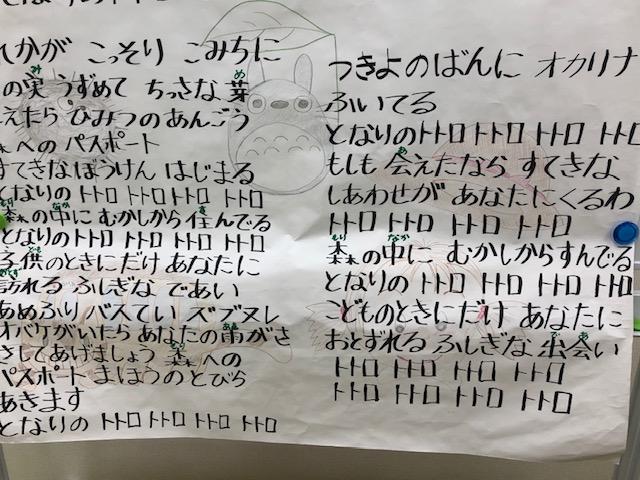 てかが こっそり こみちに
の実 うずめて ちっさな 芽
えたら ひみつのあんごう
森へのパスポート
すてきなぼうけん はじまる
となりの トトロ トトロ トトロ トトロ
森の中に むかしから 住んでる
となりのトトロ トトロ トトロ トトロ
子供のときにだけ あなたに
訪れる ふしぎな であい
あめふり バスてい ズブヌレ
オバケがいたら あなたの雨がさ
さしてあげましょう 森への
パスポート まほうの とびら
あきます
となりの トトロ トトロ トトロ トトロ
つきよのばんに オカリナ
ふいてる
となりのトトロ トトロ トトロ トトロ
もしも 会えたなら すてきな
しあわせが あなたにくるわ
トトロ トトロ トトロ トトロ
森の中に むかしからすんでる
となりの トトロ トトロ トトロ トトロ
こどものときにだけ あなたに
おとずれる ふしぎな 出会い
トトロ トトロ トトロ トトロ
トトロ トトロ トトロ トトロ